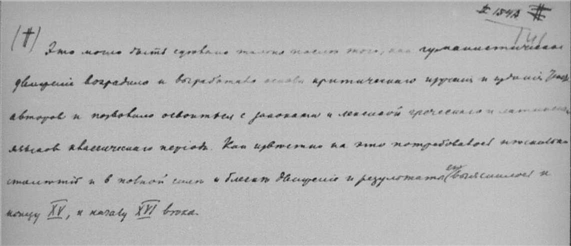 II 154А II
(#) Это могло быть сделано только после того, как гуманистическое
движение возродило и выработало основы критического изучения и издания
авторов и позволило освоиться с законами и лексикой греческого и латинского
языков классического периода. Как известно на это потребовалось
столетия и в полной силе и блеске движение и результаты его выяснились к
концу XV, и началу XVI века.